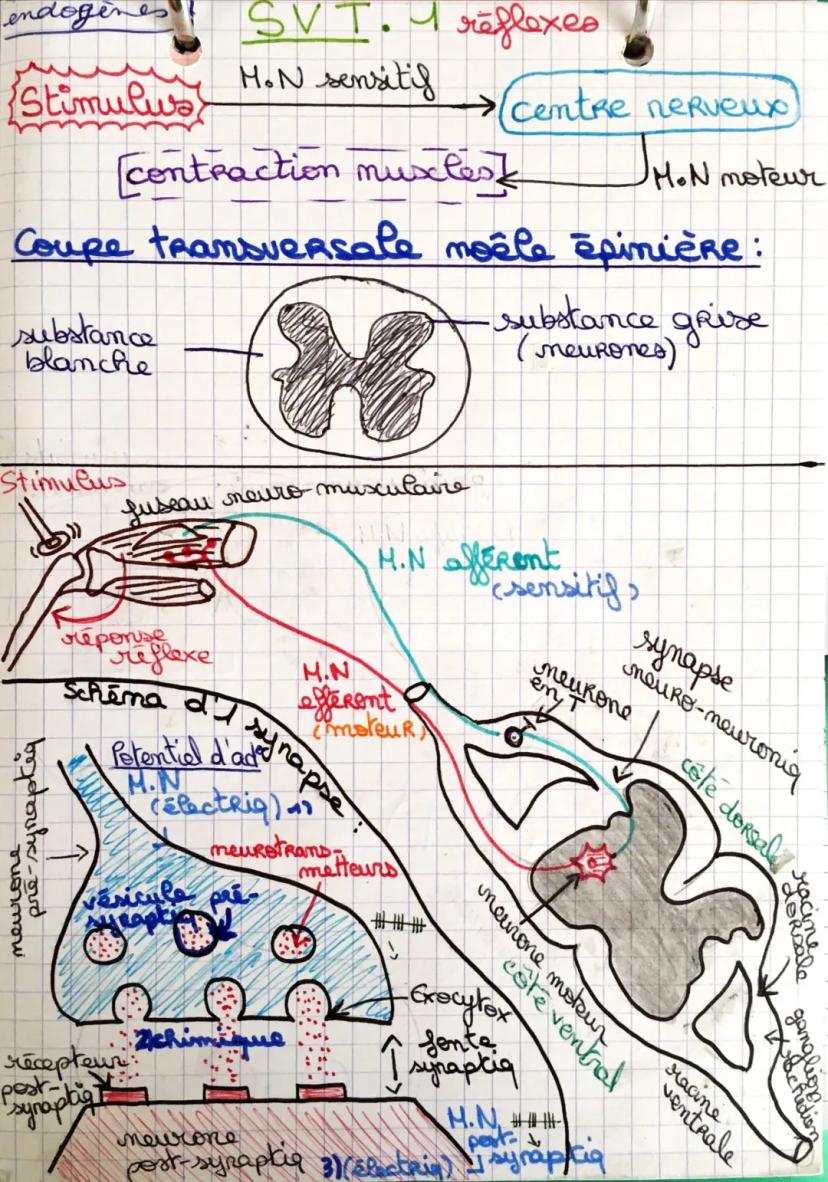 endogènes
SVT. 1 réflexes
M.N sensitif
Stimulus
centre nerveux
[contraction muscles]
M.N moteur
Coupe transversale moêle épinière :
substance
blanche
substance grise
(neurones)
Stimulus
fuseau neuro-musculaire
M.N afférent
(sensitif)
réponse
réflexe
M.N
efférent
(moteur)
synapse
neuro-neuroniq
neurone
en T
côté dorsal
racine
dorsale
ganglion
rachidien
racine
ventrale
neurone moteur
côté ventral
Schéma d'1 synapse :
Potentiel d'ad°
M.N
(électriq) 1)
neurone
pré-synaptiq
neurotrans-
metteurs
vésicule pré-
synaptiq
Exocytox
2)chimique
fente
synaptiq
récepteur
post-
synaptiq
neurone
post-synaptiq
3)(électriq)
M.N
post-
synaptiq